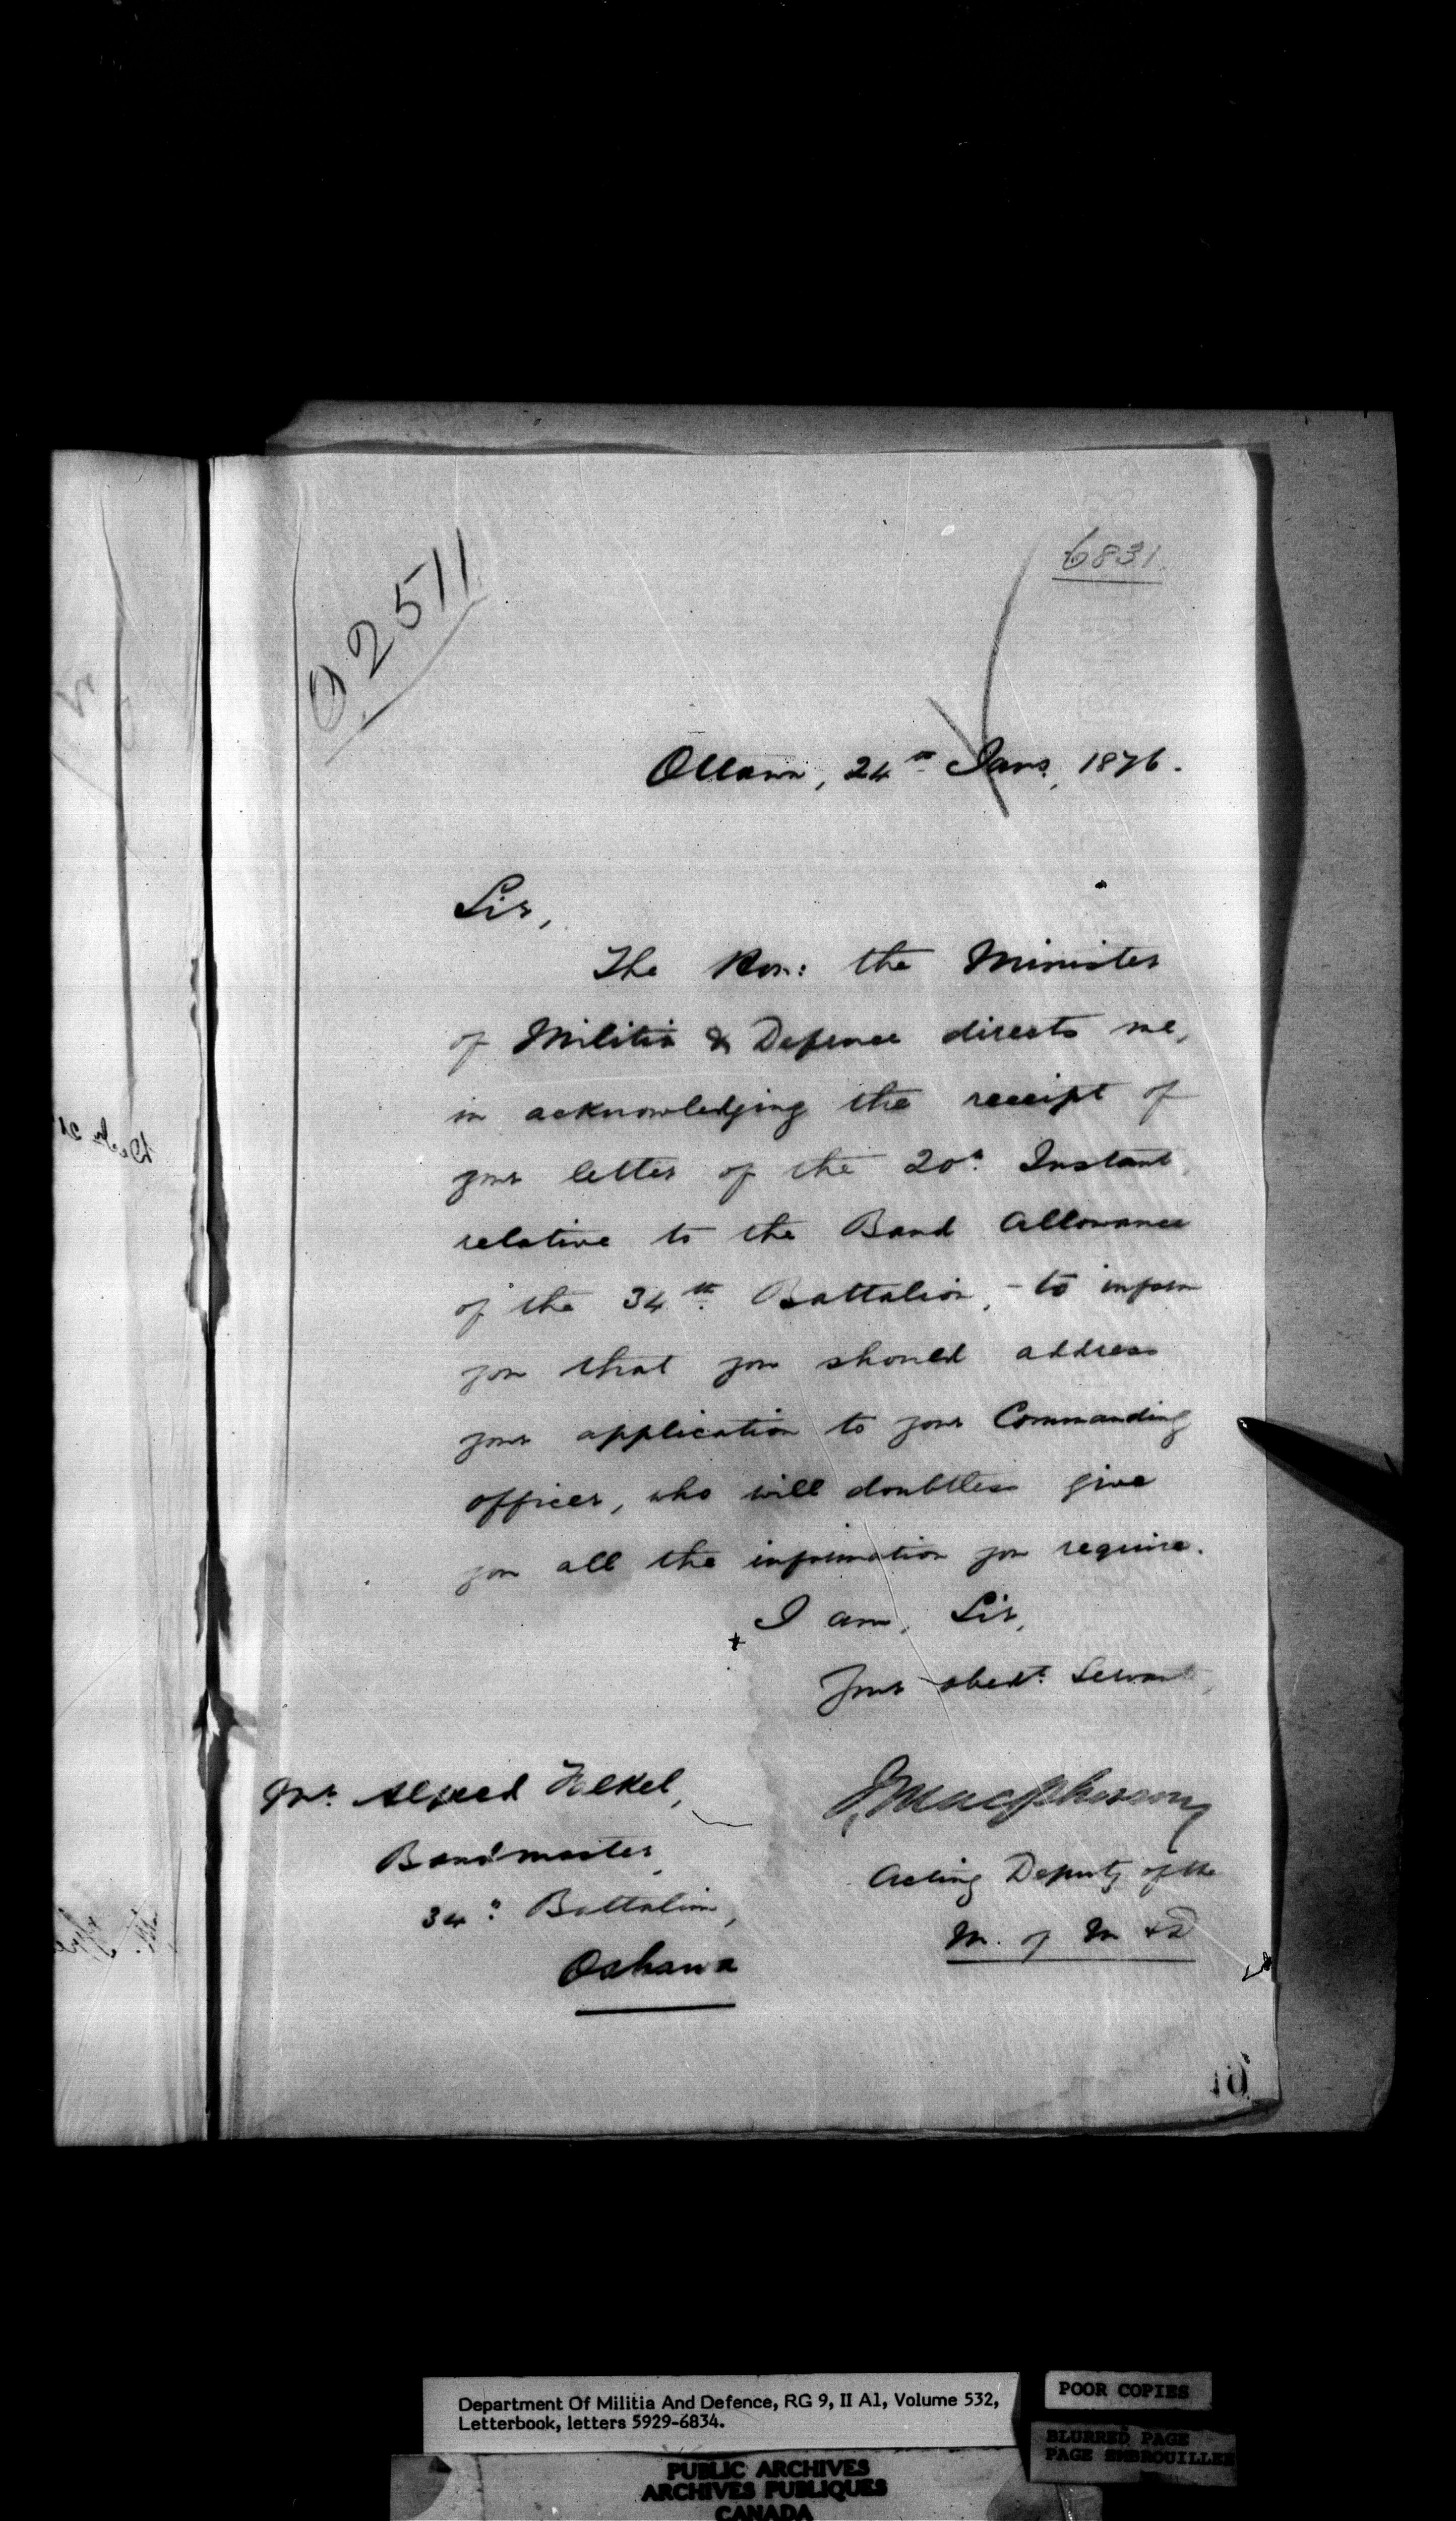 02511
6831
Ottawa, 24th Jany, 1876.
Sir,
The Hon: the Minister
of Militia & Defence directs me,
in acknowledging the receipt of
your letter of the 20th Instant,
relative to the Band Allowance
of the 34th Battalion, - to inform
you that you should address
your application to your Commanding
officer, who will doubtless give
you all the information you require.
I am, Sir,
Your obedt. Servant,
Mr. Alfred
Bandmaster,
34th Battalion,
Oshawa
Macpherson
Acting Deputy of the
M. of M & D
Department Of Militia And Defence, RG 9, II A1, Volume 532,
Letterbook, letters 5929-6834.
POOR COPIES
BLURRED PAGE
PAGE EMBROUILLEE
PUBLIC ARCHIVES
ARCHIVES PUBLIQUES
CANADA